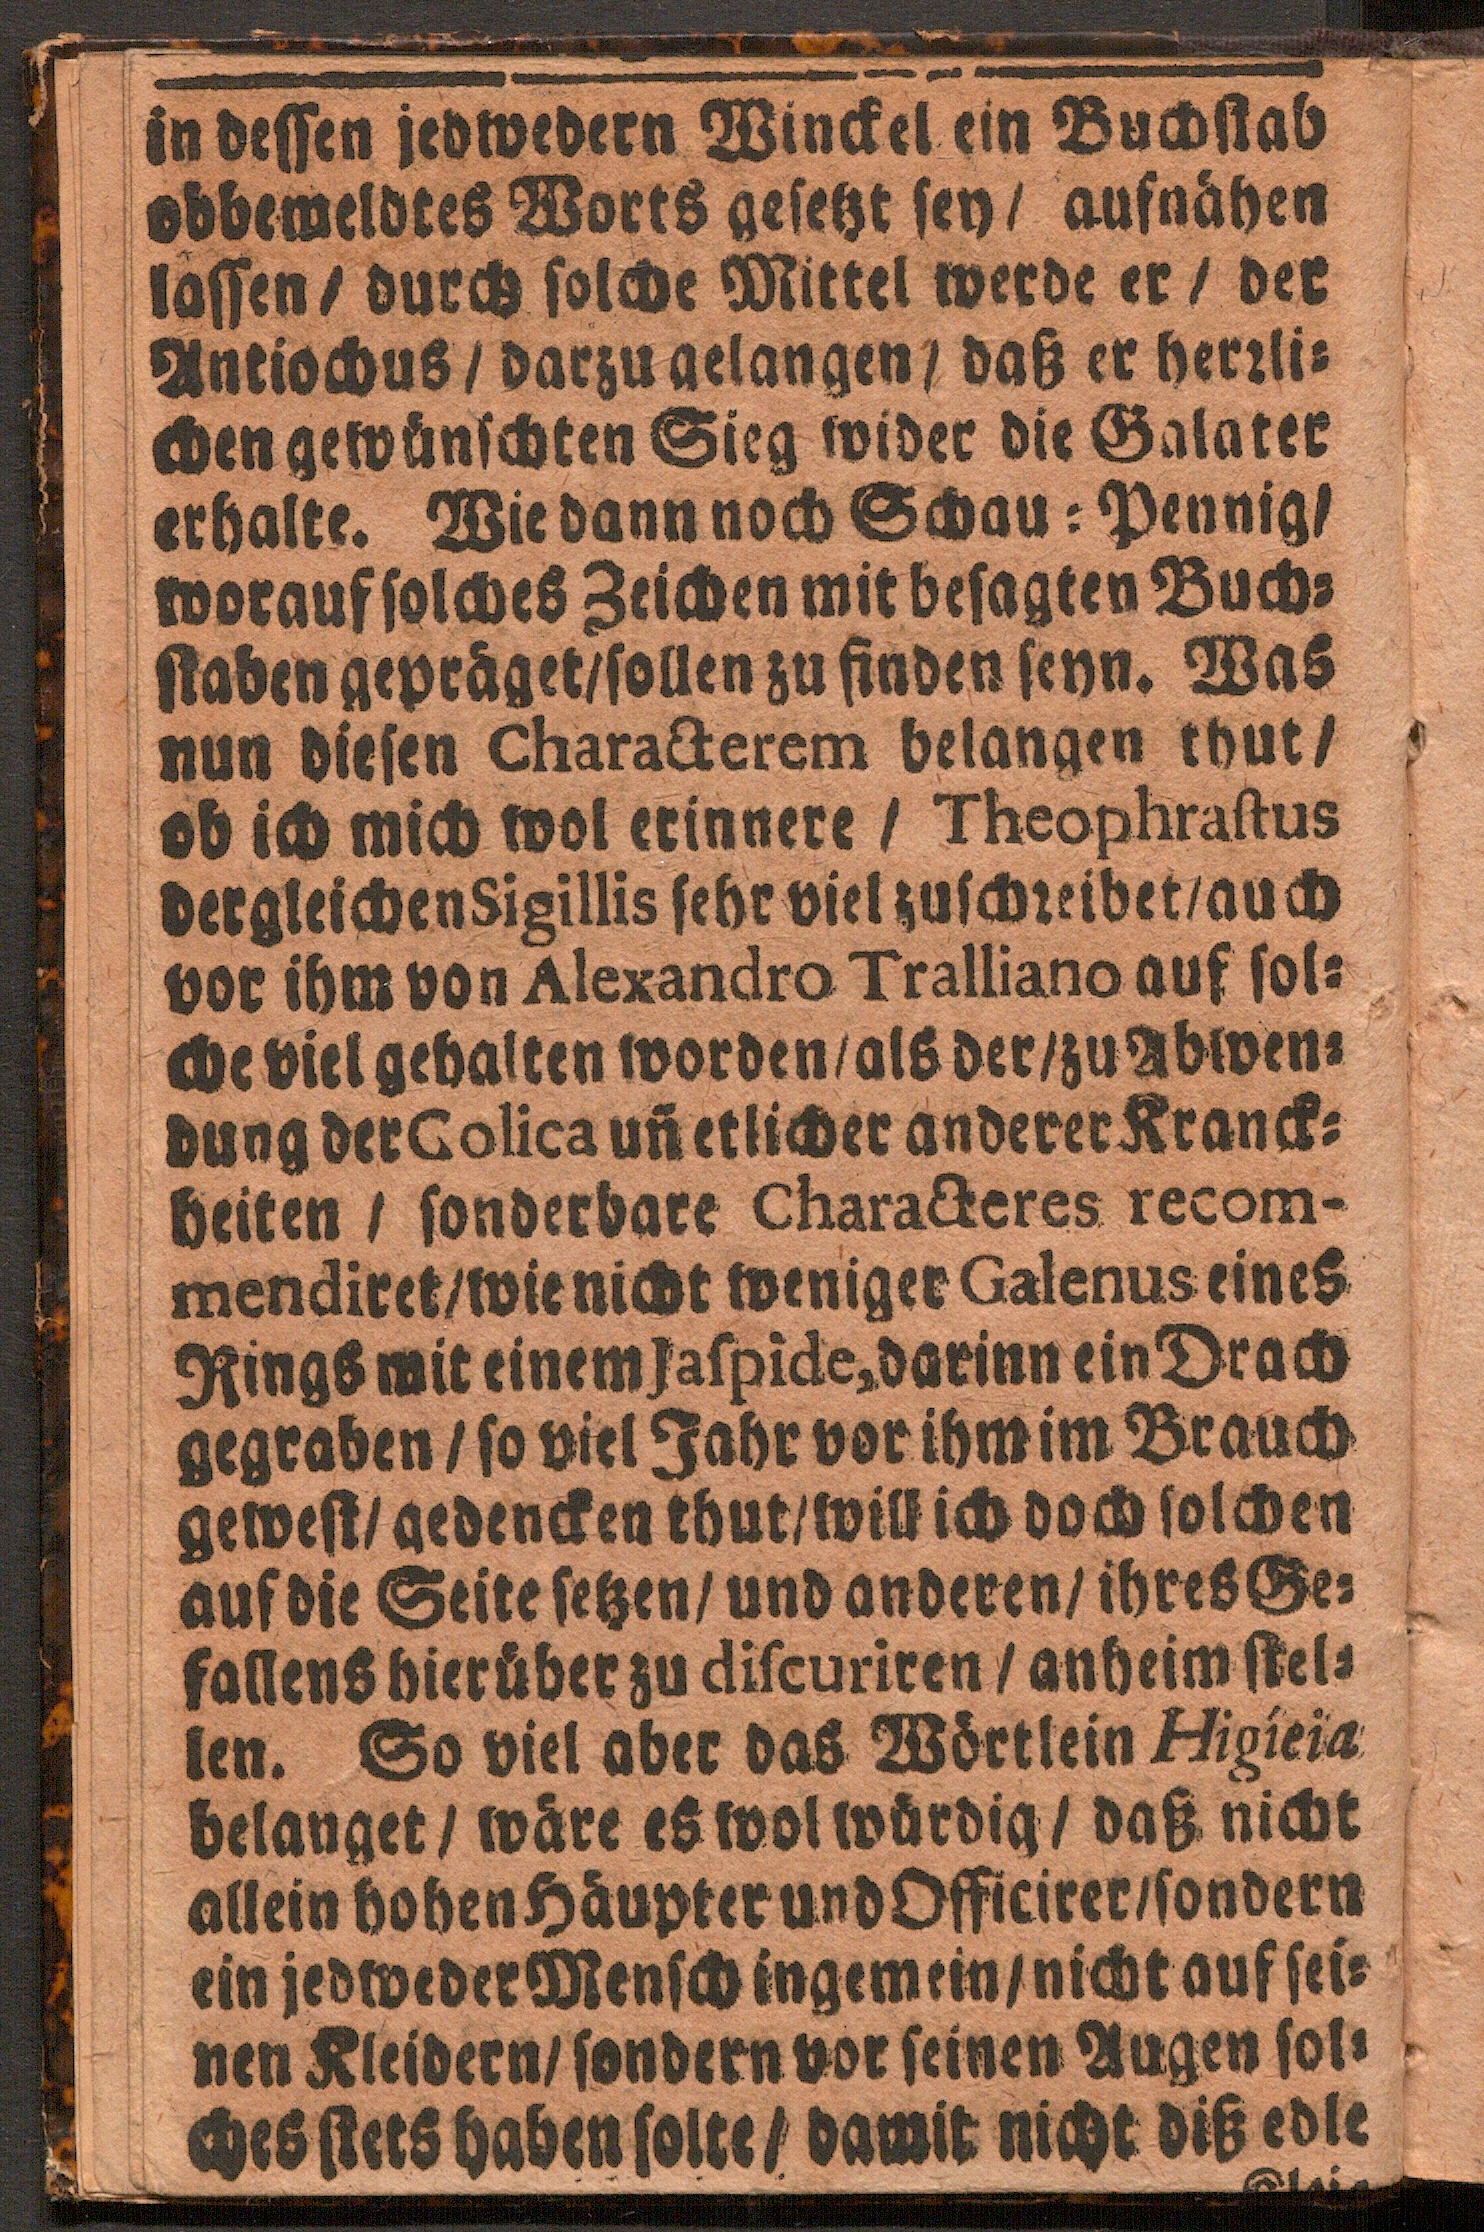 in dessen jedwedern Winckel ein Buchstab
obbemeldtes Worts gesetzt sey / aufnähen
lassen / durch solche Mittel werde er / der
Antiochus / darzu gelangen / daß er herrli-
chen gewünschten Sieg wider die Galater
erhalte. Wie dann noch Schau-Pennig /
worauf solches Zeichen mit besagten Buch-
staben gepräget / sollen zu finden seyn. Was
nun diesen Characterem belangen thut /
ob ich mich wol erinnere / Theophrastus
dergleichen Sigillis sehr viel zuschreibet / auch
vor ihm von Alexandro Tralliano auf sol-
che viel gehalten worden / als der / zu Abwen-
dung der Colica uñ etlicher anderer Kranck-
heiten / sonderbare Characteres recom-
mendiret / wie nicht weniger Galenus eines
Rings mit einem Jaspide, darinn ein Drach
gegraben / so viel Jahr vor ihm im Brauch
gewest / gedencken thut / will ich doch solchen
auf die Seite setzen / und anderen / ihres Ge-
fallens hierüber zu discuriren / anheim stel-
len. So viel aber das Wörtlein Higieia
belanget / wäre es wol würdig / daß nicht
allein hohen Häupter und Officirer / sondern
ein jedweder Mensch ingemein / nicht auf sei-
nen Kleidern / sondern vor seinen Augen sol-
ches stets haben solte / damit nicht diß edle